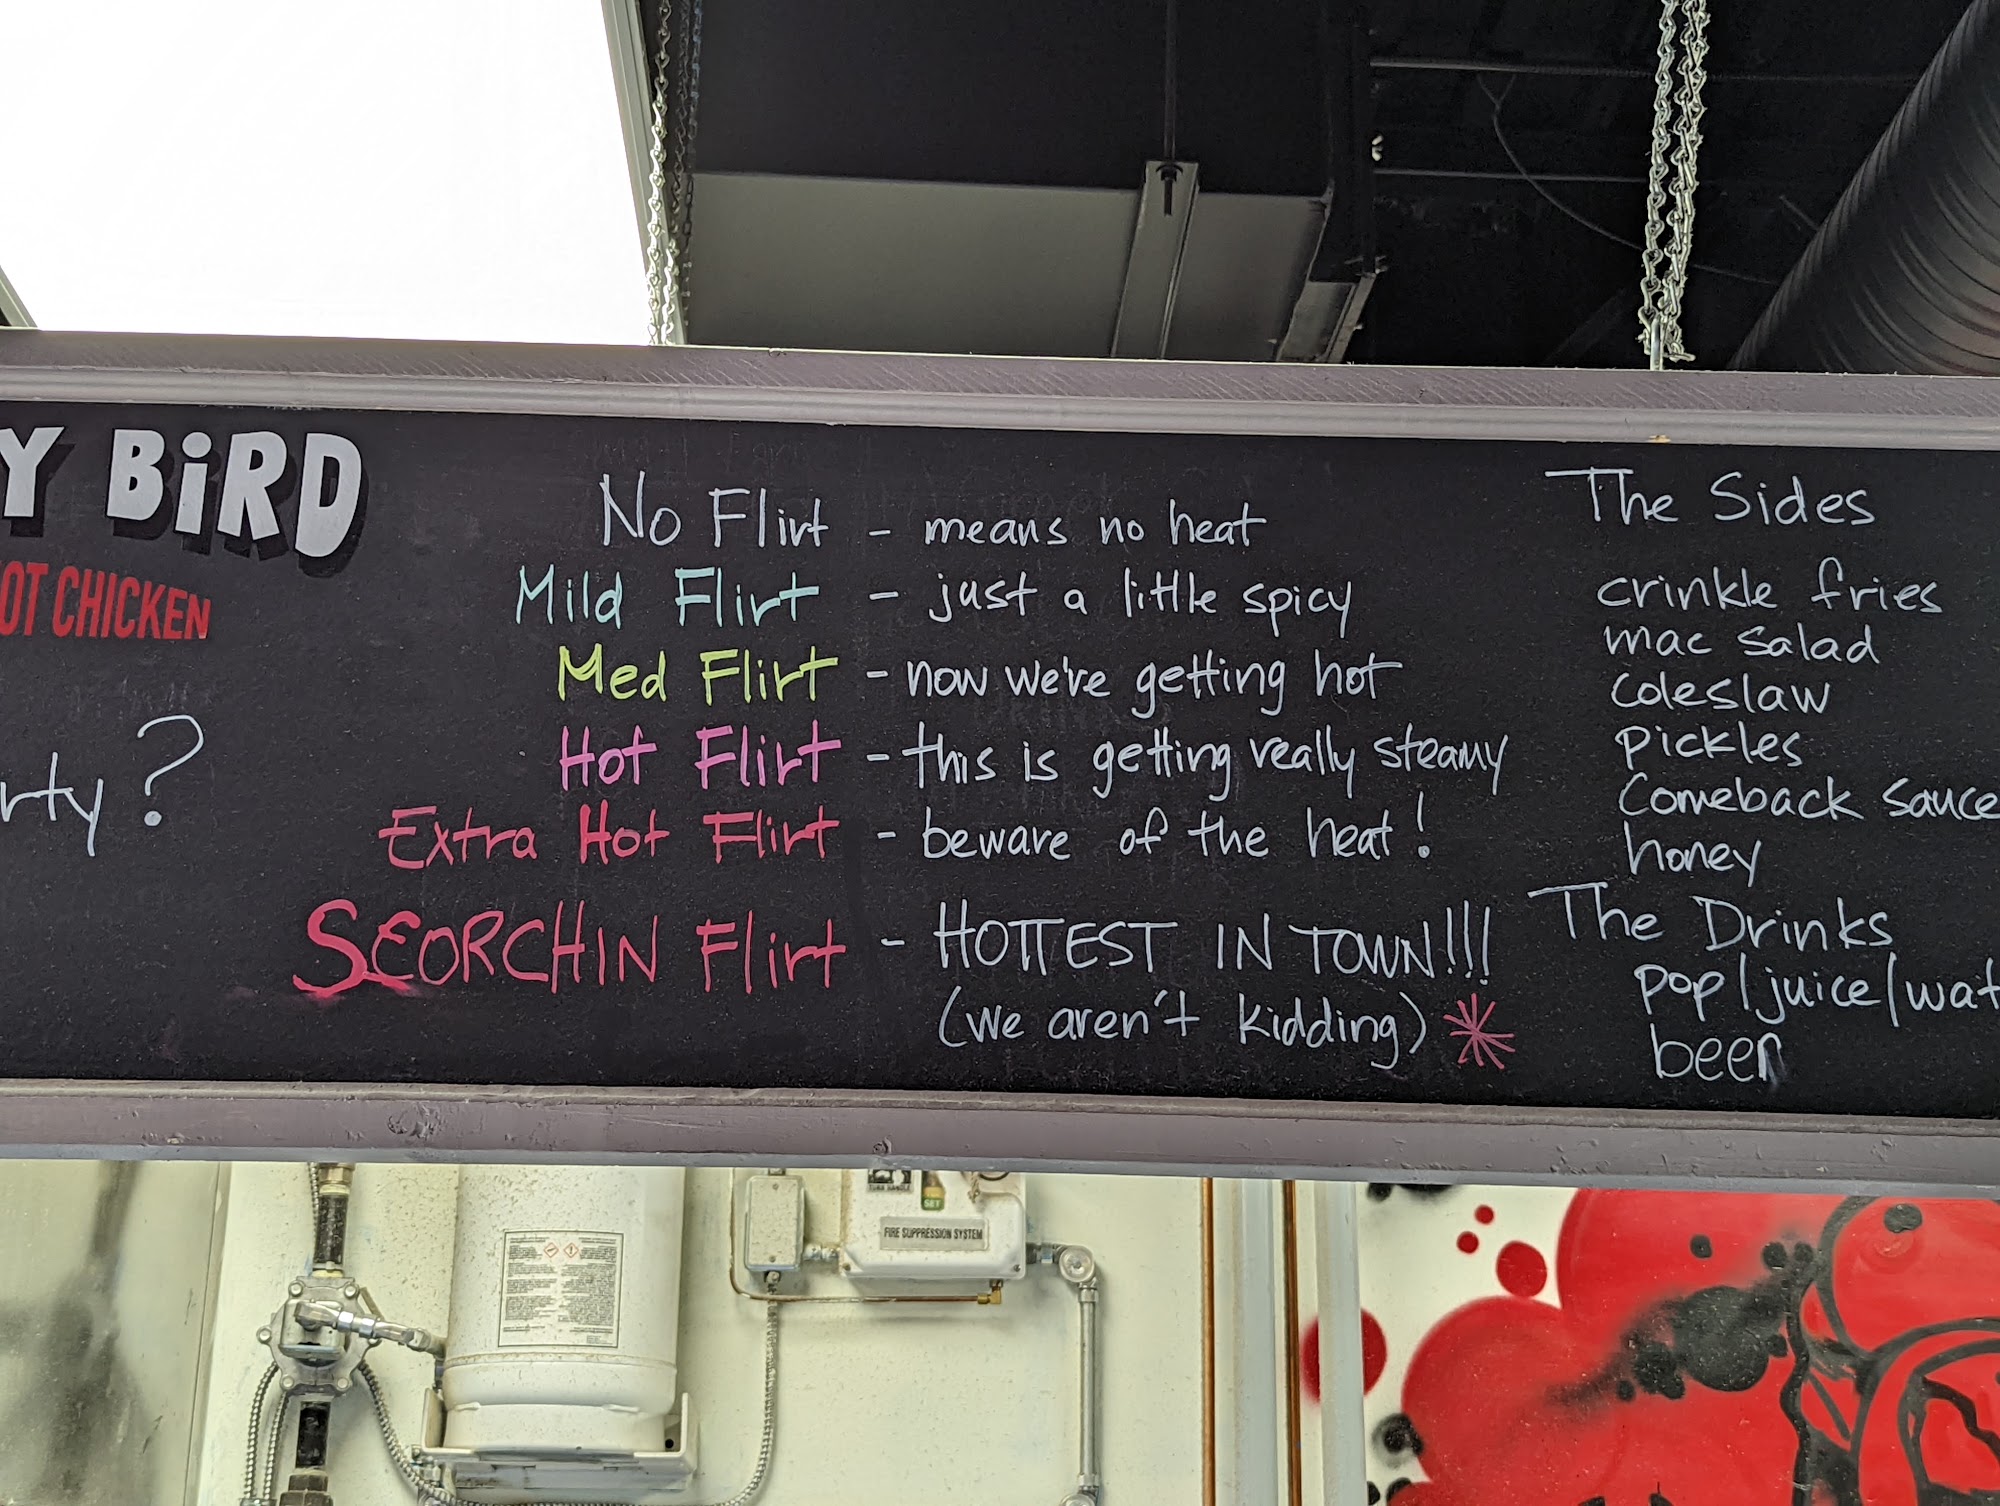 Y BiRD
OT CHICKEN
rty?
No Flirt - means no heat
Mild Flirt - just a little spicy
Med Flirt - now we're getting hot
Hot Flirt - this is getting really steamy
Extra Hot Flirt - beware of the heat!
SCORCHIN Flirt - HOTTEST IN TOWN!!!
(we aren't kidding) *
The Sides
crinkle fries
mac salad
coleslaw
pickles
Comeback sauce
honey
The Drinks
pop/juice/wat
beer
FIRE SUPPRESSION SYSTEM